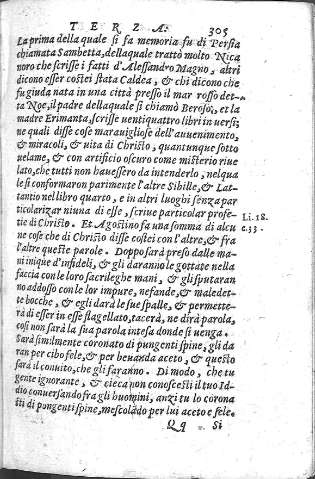 TERZA. 305
La prima della quale si fa memoria fu di Persia
chiamata Sambetta, della quale trattò molto Nica
noro che scrisse i fatti d'Alessandro Magno, altri
dicono esser costei stata Caldea, & chi dicono che
fu giuda nata in una città presso il mar rosso det-
ta Noe, il padre della quale si chiamò Beroso, et la
madre Erimanta, scrisse uentiquattro libri in uersi;
ne quali disse cose marauigliose dell'auuenimento,
& miracoli, & uita di Christo, quantunque sotto
uelame, & con artificio oscuro come misterio riue
lato, che tutti non hauessero da intenderlo, nelqua
le si conformaron parimente l'altre Sibille, & Lat-
tantio nel libro quarto, e in altri luoghi senza par
ticolarizar niuna di esse, scriue particolar profe-
tie di Christo. Et Agostino fa una somma di alcu
Li. 18.
c. 33.
ne cose che di Christo disse costei con l'altre, & fra
l'altre queste parole. Doppo sarà preso dalle ma-
ni inique d'infideli, & gli daranno le gottate nella
faccia con le loro sacrileghe mani, & gli sputaran
no addosso con le lor impure, nefande, & maledet-
te bocche, & egli darà le sue spalle, & permette-
rà di esser in esse flagellato, tacerà, ne dirà parola,
così non sarà la sua parola intesa donde si uenga.
Sarà similmente coronato di pungenti spine, gli da
ran per cibo fele, & per beuanda aceto, & questo
sarà il conuito, che gli faranno. Di modo, che tu
gente ignorante, & cieca non conoscesti il tuo Id-
dio conuersando fra gli huomini, anzi tu lo corona
sti di pungenti spine, mescolado per lui aceto e fele.
Qq Si